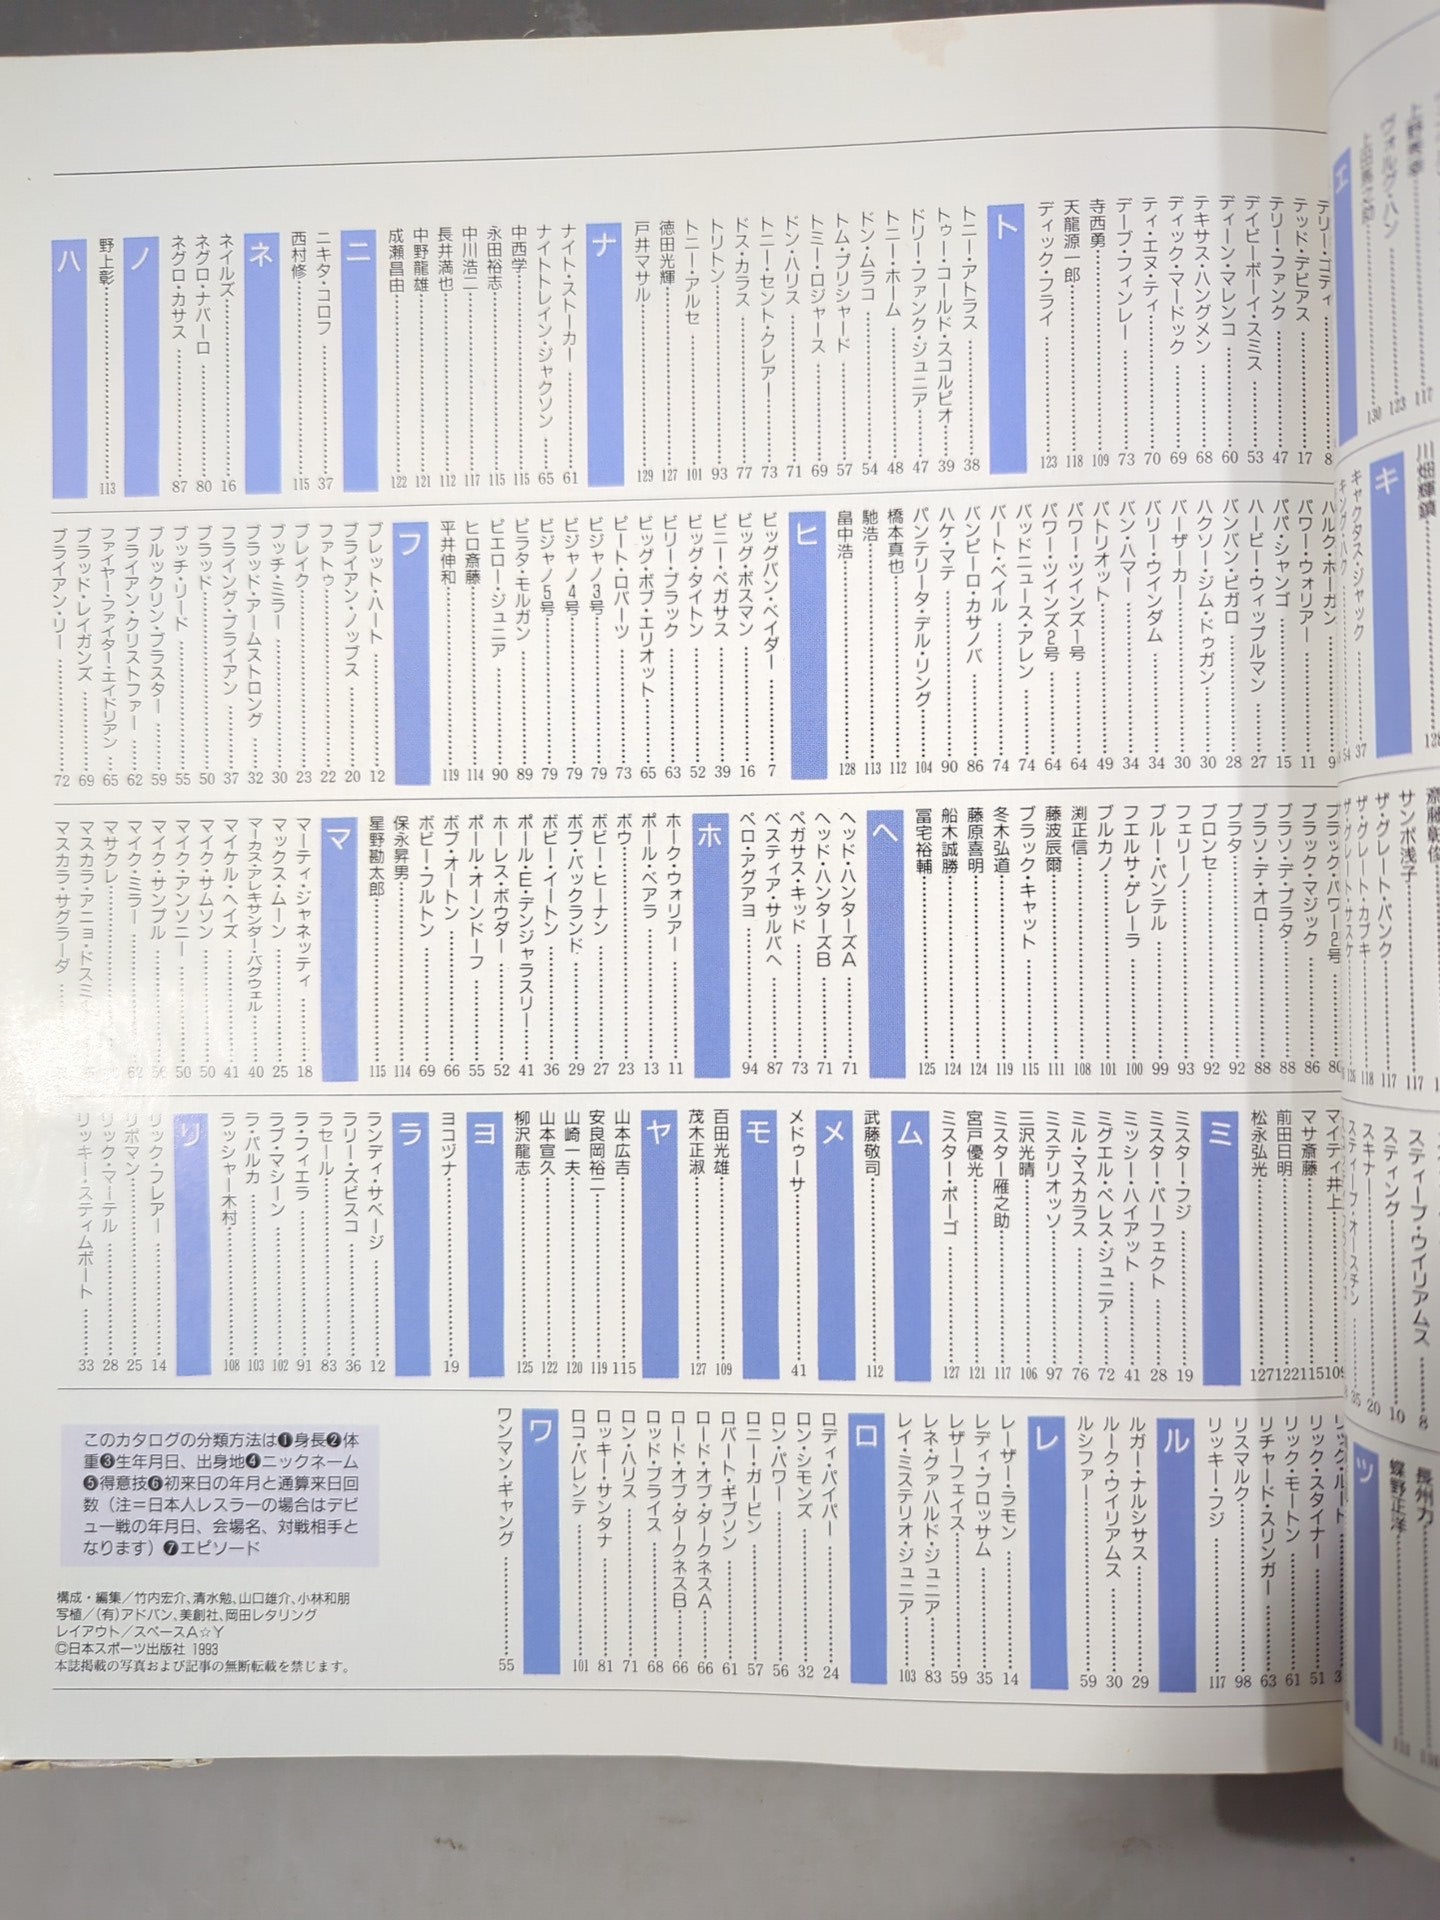 テリー・ゴディ………8
テッド・デビアス………17
テリー・ファンク………47
デイビーボーイ・スミス………53
ディーン・マレンコ………60
テキサス・ハングメン………68
ディック・マードック………69
ティ・エヌ・ティ………70
デーブ・フィンレー………73
寺西勇………109
天龍源一郎………118
ディック・フライ………123
ト
トニー・アトラス………38
トゥー・コールド・スコルピオ………39
ドリー・ファンク・ジュニア………47
トニー・ホーム………48
ドン・ムラコ………54
トム・プリシャード………57
トミー・ロジャース………69
ドン・ハリス………71
トニー・セント・クレアー………73
ドス・カラス………77
トリトン………93
トニー・アルセ………101
徳田光輝………127
戸井マサル………129
ナ
ナイト・ストーカー………61
ナイトトレイン・ジャクソン………65
中西学………115
永田裕志………115
中川浩二………117
長井満也………112
中野龍雄………121
成瀬昌由………122
ニ
ニキタ・コロフ………37
西村修………115
ネ
ネイルズ………16
ネグロ・ナバーロ………80
ネグロ・カサス………87
ノ
野上彰………113
ハ
ハルク・ホーガン………9
パワー・ウォリアー………11
パパ・シャンゴ………15
ハービー・ウィップルマン………27
バンバン・ビガロ………28
ハクソー・ジム・ドゥガン………30
バーザーカー………30
バリー・ウインダム………34
バン・ハマー………34
パトリオット………49
パワー・ツインズ1号………64
パワー・ツインズ2号………64
バッドニュース・アレン………74
バート・ベイル………74
バンピーロ・カサノバ………86
ハケ・マテ………90
パンテリータ・デル・リング………104
橋本真也………112
馳浩………113
畠中浩………128
ヒ
ビッグバン・ベイダー………7
ビッグ・ボスマン………16
ビニー・ペガサス………39
ビッグ・タイトン………52
ビリー・ブラック………63
ビッグ・ボブ・エリオット………65
ピート・ロバーツ………73
ビジャノ3号………79
ビジャノ4号………79
ビジャノ5号………79
ピラタ・モルガン………89
ピエロー・ジュニア………90
ヒロ斎藤………114
平井伸和………119
フ
ブレット・ハート………12
ブライアン・ノッブス………20
ファトゥ………22
ブレイク………23
ブッチ・ミラー………30
ブラッド・アームストロング………32
フライング・ブライアン………37
ブラッド………50
ブッチ・リード………55
ブルックリン・ブラスター………59
ブライアン・クリストファー………62
ファイヤー・ファイター・エイドリアン………65
ブラッド・レイガンズ………69
ブライアン・リー………72
ブラック・パワー2号………86
ブラック・マジック………86
ブラソ・デ・プラタ………88
ブラソ・デ・オロ………88
プラタ………92
ブロンセ………92
フェリーノ………93
ブルー・パンテル………99
フエルサ・ゲレーラ………100
ブルカノ………101
渕正信………108
藤波辰爾………111
ブラック・キャット………115
冬木弘道………119
藤原喜明………124
船木誠勝………124
冨宅祐輔………125
ヘ
ヘッド・ハンターズA………71
ヘッド・ハンターズB………71
ペガサス・キッド………73
ベスティア・サルバヘ………87
ペロ・アグアヨ………94
ホ
ホーク・ウォリアー………11
ポール・ベアラ………13
ボウ………23
ボビー・ヒーナン………27
ボブ・バックランド………29
ボビー・イートン………36
ポール・E・デンジャラスリー………41
ホーレス・ボウダー………52
ポール・オーンドーフ………55
ボブ・オートン………66
ボビー・フルトン………69
保永昇男………114
星野勘太郎………115
マ
マーティ・ジャネッティ………18
マックス・ムーン………25
マーカス・アレキサンダー・バグウェル………40
マイケル・ヘイズ………41
マイク・サムソン………50
マイク・アンソニー………50
マイク・サンプル………56
マイク・ミラー………62
マサクレ………
マスカラ・アニョ・ドスミ………
マスカラ・サグラーダ………
マイティ井上………109
マサ斎藤………115
前田日明………122
松永弘光………127
ミ
ミスター・フジ………19
ミスター・パーフェクト………28
ミッシー・ハイアット………41
ミグエル・ペレス・ジュニア………72
ミル・マスカラス………76
ミステリオッソ………97
三沢光晴………106
ミスター雁之助………117
宮戸優光………121
ミスター・ポーゴ………127
ム
武藤敬司………112
メ
メドゥーサ………41
モ
百田光雄………109
茂木正淑………127
ヤ
山本広吉………115
安良岡裕二………119
山崎一夫………120
山本宣久………122
柳沢龍志………125
ヨ
ヨコヅナ………19
ラ
ランディ・サベージ………12
ラリー・ズビスコ………36
ラセール………83
ラ・フィエラ………91
ラブ・マシーン………102
ラ・パルカ………103
ラッシャー木村………108
リ
リック・フレアー………14
リポマン………25
リック・マーテル………28
リッキー・スティムボート………33
リック・ルード………3
リック・スタイナー………51
リック・モートン………61
リチャード・スリンガー………63
リスマルク………98
リッキー・フジ………117
ル
ルガー・ナルシサス………29
ルーク・ウイリアムス………30
ルシファー………59
レ
レーザー・ラモン………14
レディ・ブロッサム………35
レザーフェイス………59
レネ・グァハルド・ジュニア………83
レイ・ミステリオ・ジュニア………103
ロ
ロディ・パイパー………24
ロン・シモンズ………32
ロン・パワー………56
ロニー・ガービン………57
ロバート・ギブソン………61
ロード・オブ・ダークネスA………66
ロード・オブ・ダークネスB………66
ロッド・プライス………68
ロン・ハリス………71
ロッキー・サンタナ………81
ロコ・バレンテ………101
ワ
ワンマン・ギャング………55
このカタログの分類方法は❶身長❷体
重❸生年月日、出身地❹ニックネーム
❺得意技❻初来日の年月と通算来日回
数（注＝日本人レスラーの場合はデビ
ュー戦の年月日、会場名、対戦相手と
なります）❼エピソード
構成・編集／竹内宏介、清水勉、山口雄介、小林和朋
写植／(有)アドバン、美創社、岡田レタリング
レイアウト／スペースA☆Y
©日本スポーツ出版社 1993
本誌掲載の写真および記事の無断転載を禁じます。
エ
ヴォルグ・ハン………123
川畑輝鎮………128
キ
キャクタス・ジャック………37
キングハク………54
斎藤彰俊………117
サンボ浅子………117
ザ・グレート・パンク………117
ザ・グレート・カブキ………118
ザ・グレート・サスケ………126
スティーブ・ウイリアムス………8
スティング………10
スキナー………20
スティーブ・オースチン………35
ツ
長州力
蝶野正洋………111